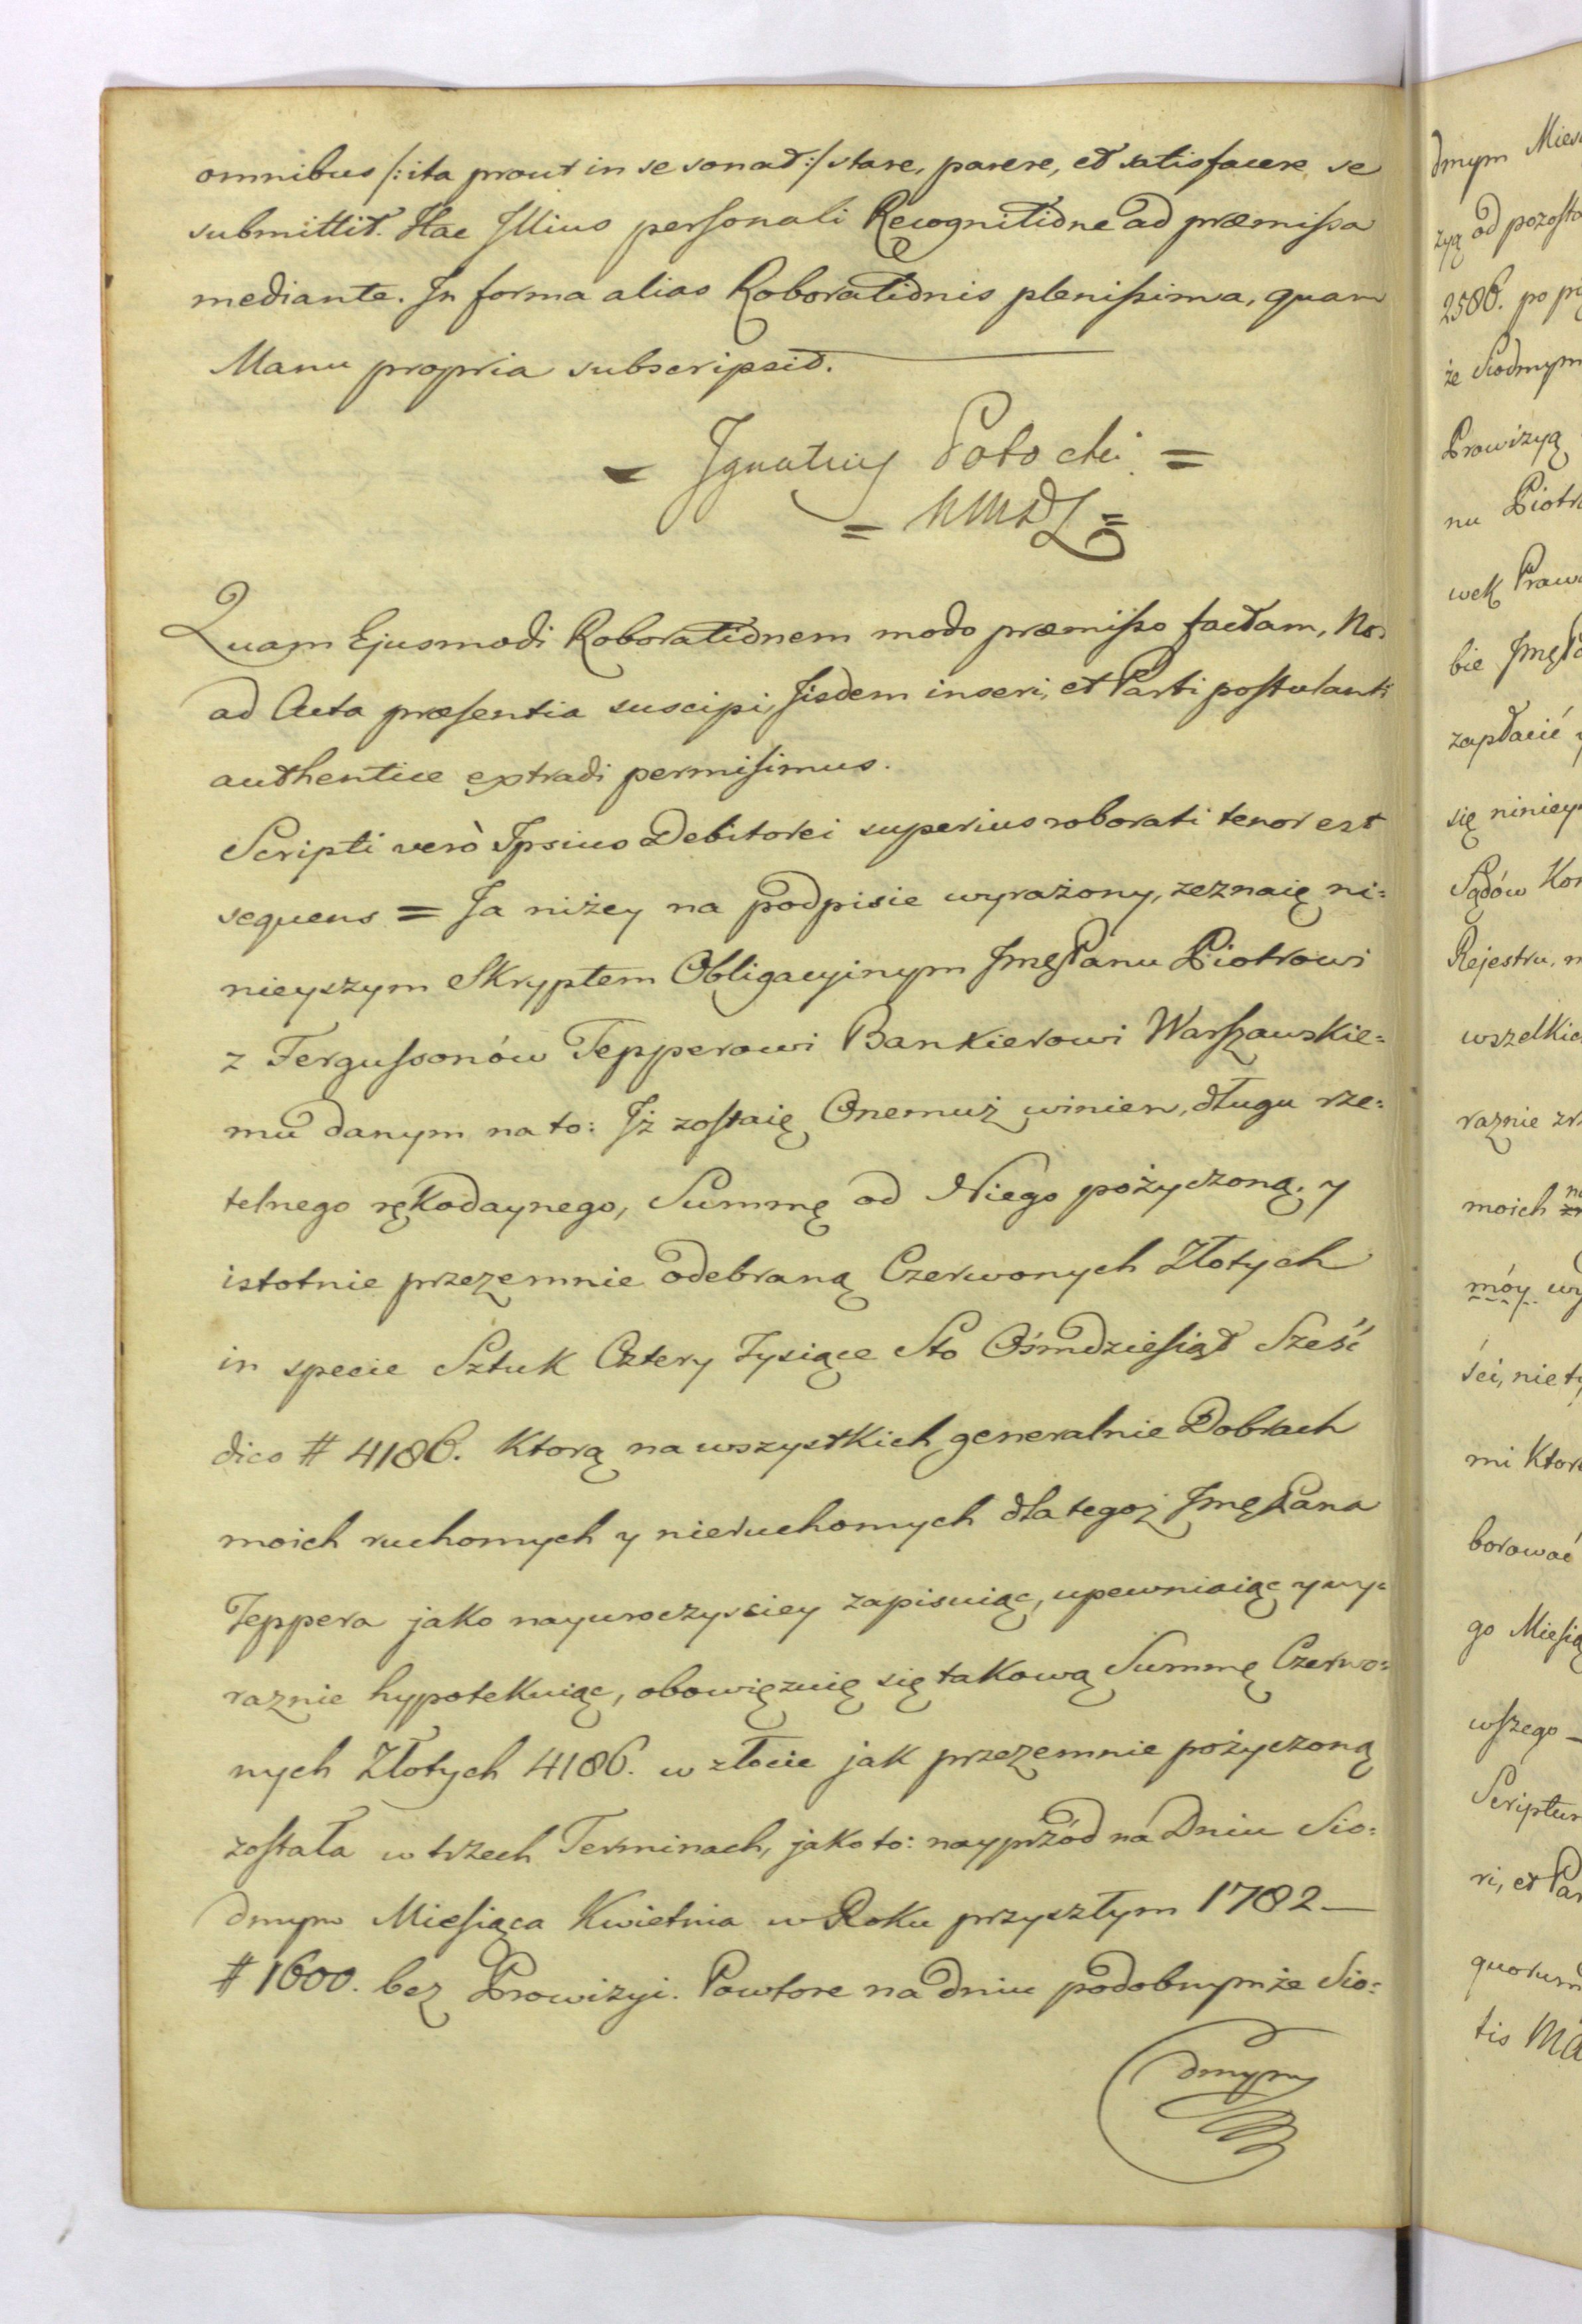 omnibus /: ita prout in se sonat :/ stare, parere, et satisfacere se
submittit. Hac Illius personali Recognitione ad præmissa
mediante. In forma alias Roborationis plenissima, quam
Manu propria subscripsit.
= Ignatius Potocki =
=
Quam Ejusmodi Roborationem modo præmisso factam, Nos
ad Acta præsentia suscipi, Iisdem inseri, et Parti postulanti
authentice extradi permisimus.
Scripti verò Ipsius Debitorei superius roborati tenor est
sequens = Ja niżey na podpisie wyrażony, zeznaię ni=
nieyszym Skryptem Obligacyinym JmęPanu Piotrowi
z Fergussonów Tepperowi Bankierowi Warszawskie=
mu danym na to: Iż zostaię Onemuż winien, długu rze=
telnego rękodaynego, Summę od Niego pożyczoną, y
istotnie przezemnie odebraną Czerwonych Złotych
in specie Sztuk Cztery Tysiące Sto Ośmdziesiąt Sześć
dico # 4186. Ktorą na wszystkich generalnie Dobrach
moich ruchomych y nieruchomych dla tegoż JmęPana
Teppera jako nayuroczysciey zapisuiąc, upewniaiąc y wy=
raznie hypotekuiąc, obowięzuię się takową Summę Czerwo=
nych Złotych 4186. w złocie jak przezemnie pożyczoną
została w trzech Terminach, jako to: nayprzód na Dniu Sio=
dmym Miesiąca Kwietnia w Roku przyszłym 1782 —
# 1600. bez Prowizyi. Powtore na dniu podobnymże Sio=
dmym
dmym
zyą od
2586. po
że Siodmym
Prowizyą
nu
wek
bie
zapłacić
się
Sądów
Rejestru,
raznie
moich
móy
ści, nie
mi
borować
go
wszego
ri, et
tis